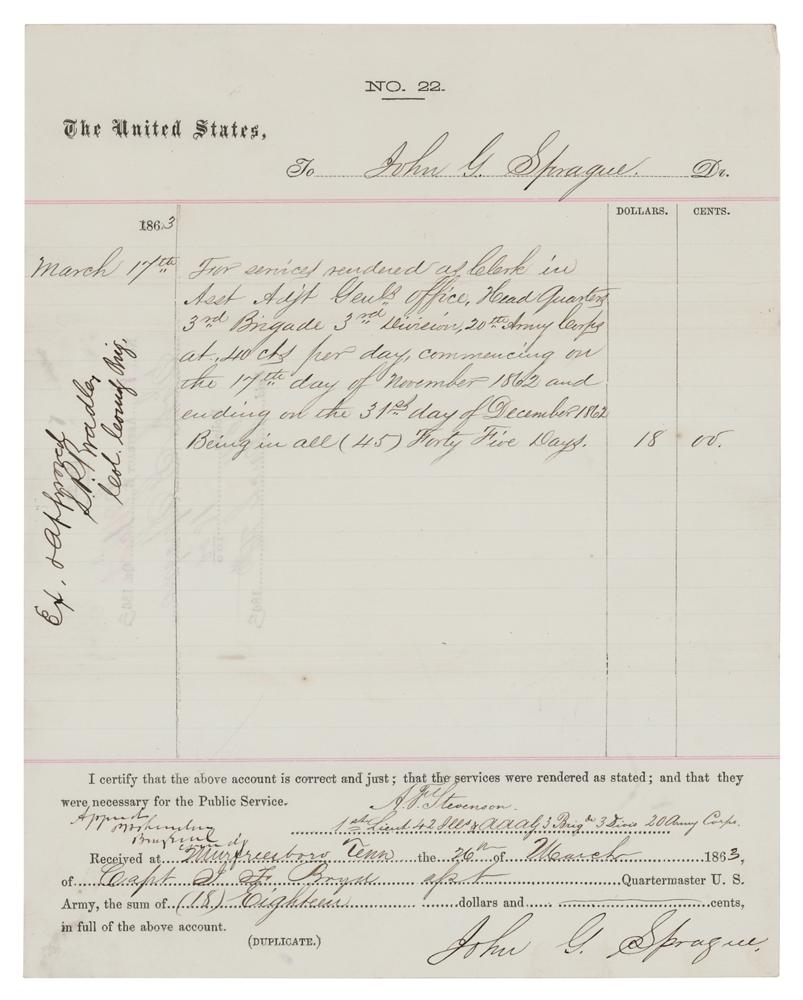 NO. 22.
The United States,
To John G. Sprague. Dr.
DOLLARS. CENTS.
1863
March 17th For services rendered as Clerk in
Asst Adjt Genls office, Head Quarters
3rd Brigade 3rd Division, 20th Army Corps
at .40 cts per day, commencing on
the 17th day of November 1862 and
ending on the 31st day of December 1862
Being in all (45) Forty Five Days. 18 00.
Ex. & Approved
Col. Comg Brig.
I certify that the above account is correct and just; that the services were rendered as stated; and that they
were necessary for the Public Service.
Stevenson.
1st Lieut 42 Ills & aaag 3 Brigd 3 Divis 20 Army Corps.
Approved
Received at Murfreesboro Tenn the 26th of March 1863,
of Capt Quartermaster U. S.
Army, the sum of (18) Eighteen dollars and cents,
in full of the above account.
(DUPLICATE.)
John G. Sprague.